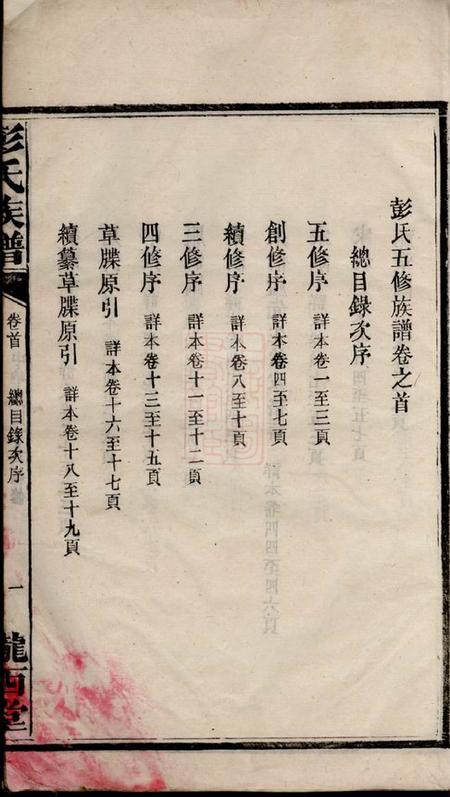 彭氏五修族譜卷之首
總目錄次序
五修序 詳本卷一至三頁
創修序 詳本卷四至七頁
續修序 詳本卷八至十頁
三修序 詳本卷十一至十二頁
四修序 詳本卷十三至十五頁
草牒原引 詳本卷十六至十七頁
續纂草牒原引 詳本卷十八至十九頁
彭氏族譜 卷首 總目錄次序 一 隴西堂